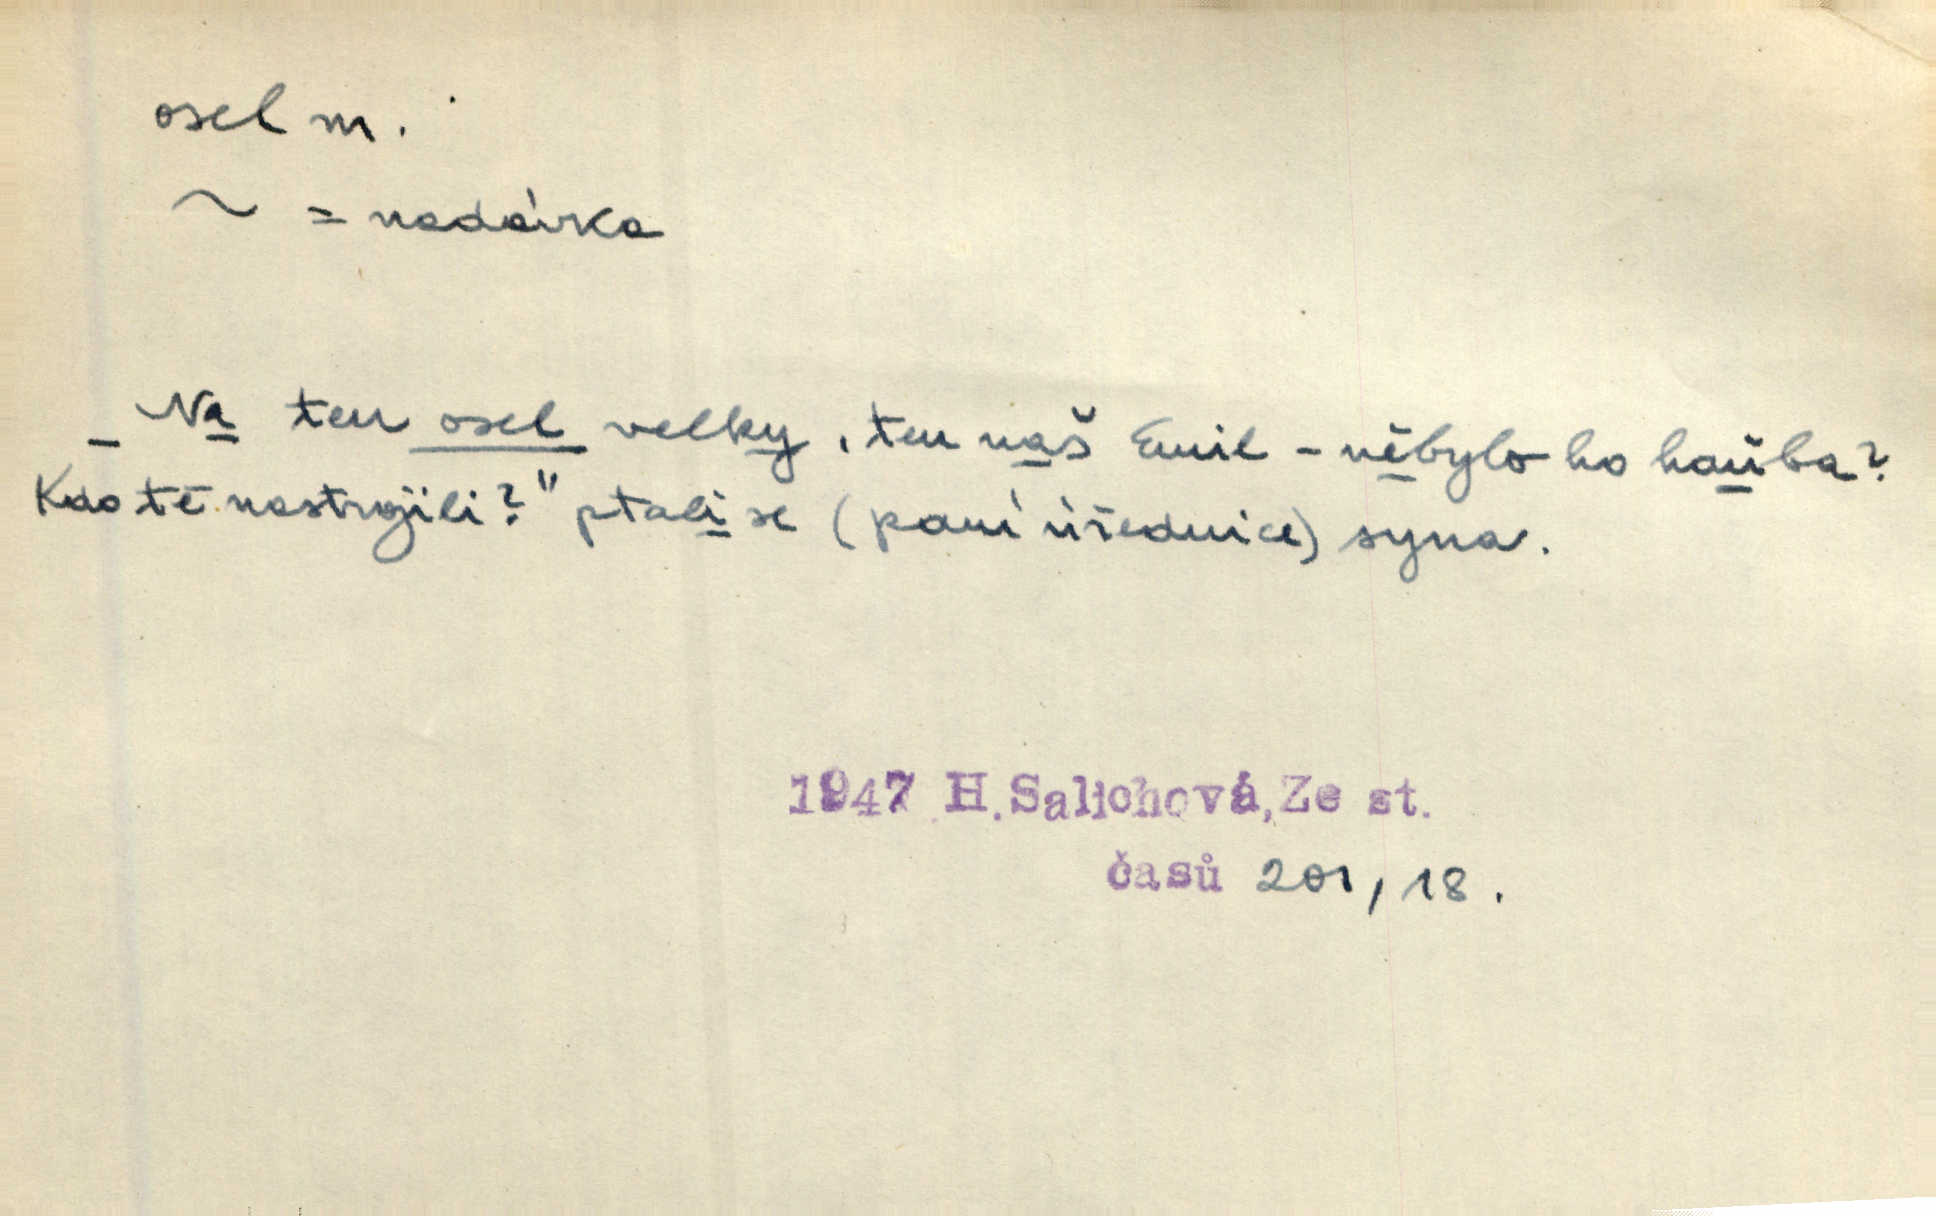 osel m.
~ = nadávka
_ Na ten osel velky, ten naš Emil - něbylo ho haňba?
Kdo tě nastrojili?" ptali se (paní úřednice) syna.
1947 H.Salichová, Ze st.
časů 201, 18.